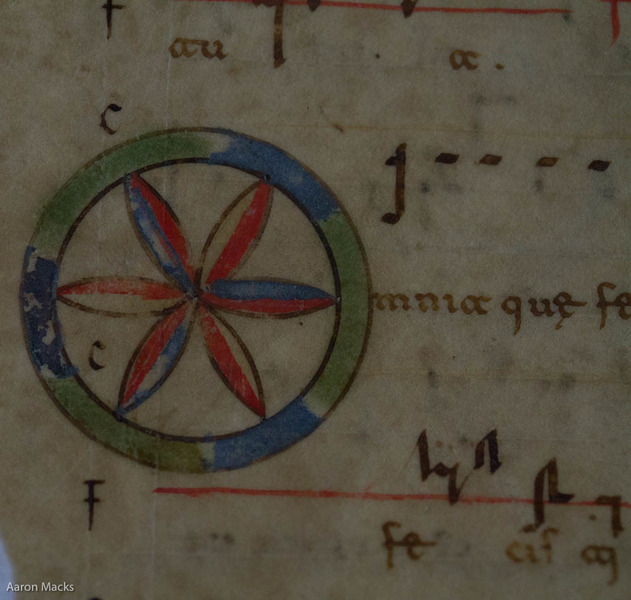 F
au a.
C
mnia quę fe
C
F
fe
Aaron Macks